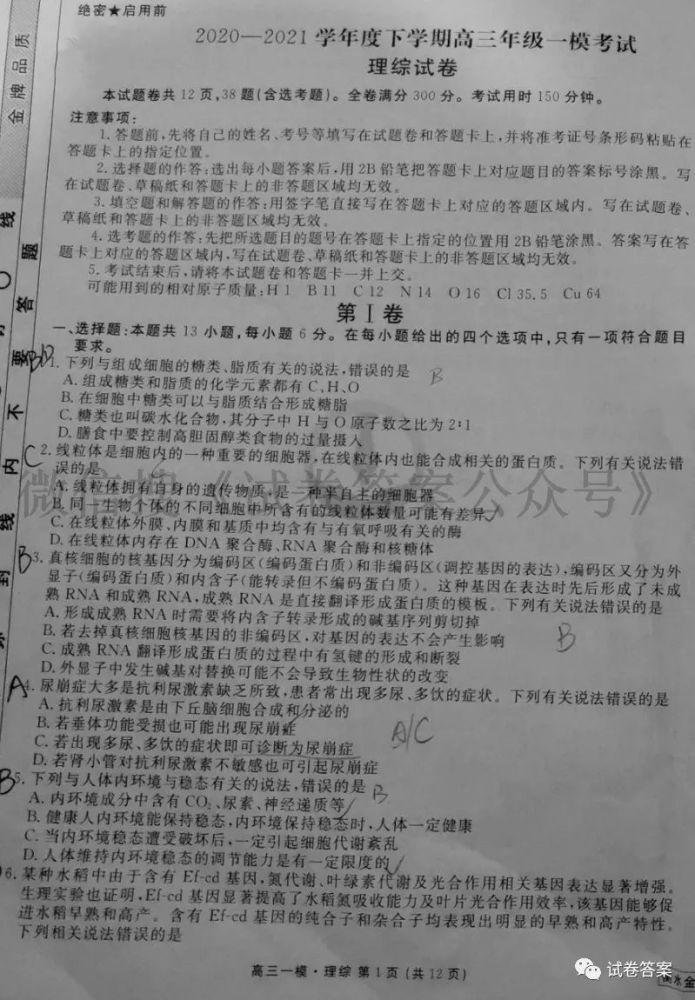 绝密★启用前
2020—2021学年度下学期高三年级一模考试
理综试卷
本试题卷共12页,38题(含选考题)。全卷满分300分。考试用时150分钟。
注意事项:
1.答题前,先将自己的姓名、考号等填写在试题卷和答题卡上,并将准考证号条形码粘贴在
答题卡上的指定位置。
2.选择题的作答:选出每小题答案后,用2B铅笔把答题卡上对应题目的答案标号涂黑。写
在试题卷、草稿纸和答题卡上的非答题区域均无效。
3.填空题和解答题的作答:用签字笔直接写在答题卡上对应的答题区域内。写在试题卷、
草稿纸和答题卡上的非答题区域均无效。
4.选考题的作答:先把所选题目的题号在答题卡上指定的位置用2B铅笔涂黑。答案写在答
题卡上对应的答题区域内,写在试题卷、草稿纸和答题卡上的非答题区域均无效。
5.考试结束后,请将本试题卷和答题卡一并上交。
可能用到的相对原子质量:H 1 B 11 C 12 N 14 O 16 Cl 35.5 Cu 64
第Ⅰ卷
一、选择题:本题共13小题,每小题6分。在每小题给出的四个选项中,只有一项符合题目
要求。
1.下列与组成细胞的糖类、脂质有关的说法,错误的是 B
A.组成糖类和脂质的化学元素都有C、H、O
B.在细胞中糖类可以与脂质结合形成糖脂
C.糖类也叫碳水化合物,其分子中H与O原子数之比为2:1
D.膳食中要控制高胆固醇类食物的过量摄入
C 2.线粒体是细胞内的一种重要的细胞器,在线粒体内也能合成相关的蛋白质。下列有关说法错
误的是
A.线粒体拥有自身的遗传物质,是一种半自主的细胞器
B.同一生物个体的不同细胞中所含有的线粒体数量可能有差异
C.在线粒体外膜、内膜和基质中均含有与有氧呼吸有关的酶
D.在线粒体内存在DNA聚合酶、RNA聚合酶和核糖体
B 3.真核细胞的核基因分为编码区(编码蛋白质)和非编码区(调控基因的表达),编码区又分为外
显子(编码蛋白质)和内含子(能转录但不编码蛋白质)。这种基因在表达时先后形成了未成
熟RNA和成熟RNA,成熟RNA是直接翻译形成蛋白质的模板。下列有关说法错误的是
A.形成成熟RNA时需要将内含子转录形成的碱基序列剪切掉
B.若去掉真核细胞核基因的非编码区,对基因的表达不会产生影响 B
C.成熟RNA翻译形成蛋白质的过程中有氢键的形成和断裂
D.外显子中发生碱基对替换可能不会导致生物性状的改变
A 4.尿崩症大多是抗利尿激素缺乏所致,患者常出现多尿、多饮的症状。下列有关说法错误的是
A.抗利尿激素是由下丘脑细胞合成和分泌的
B.若垂体功能受损也可能出现尿崩症 A/C
C.若出现多尿、多饮的症状即可诊断为尿崩症
D.若肾小管对抗利尿激素不敏感也可引起尿崩症
B 5.下列与人体内环境与稳态有关的说法,错误的是 B
A.内环境成分中含有CO₂、尿素、神经递质等
B.健康人内环境能保持稳态,内环境保持稳态时,人体一定健康
C.当内环境稳态遭受破坏后,一定引起细胞代谢紊乱
D.人体维持内环境稳态的调节能力是有一定限度的
6.某种水稻中由于含有Ef-cd基因,氮代谢、叶绿素代谢及光合作用相关基因表达显著增强。
生理实验也证明,Ef-cd基因显著提高了水稻氮吸收能力及叶片光合作用效率,该基因能够促
进水稻早熟和高产。含有Ef-cd基因的纯合子和杂合子均表现出明显的早熟和高产特性。
下列相关说法错误的是
高三一模·理综 第1页(共12页)
试卷答案
金牌品质
微信搜《试卷答案公众号》